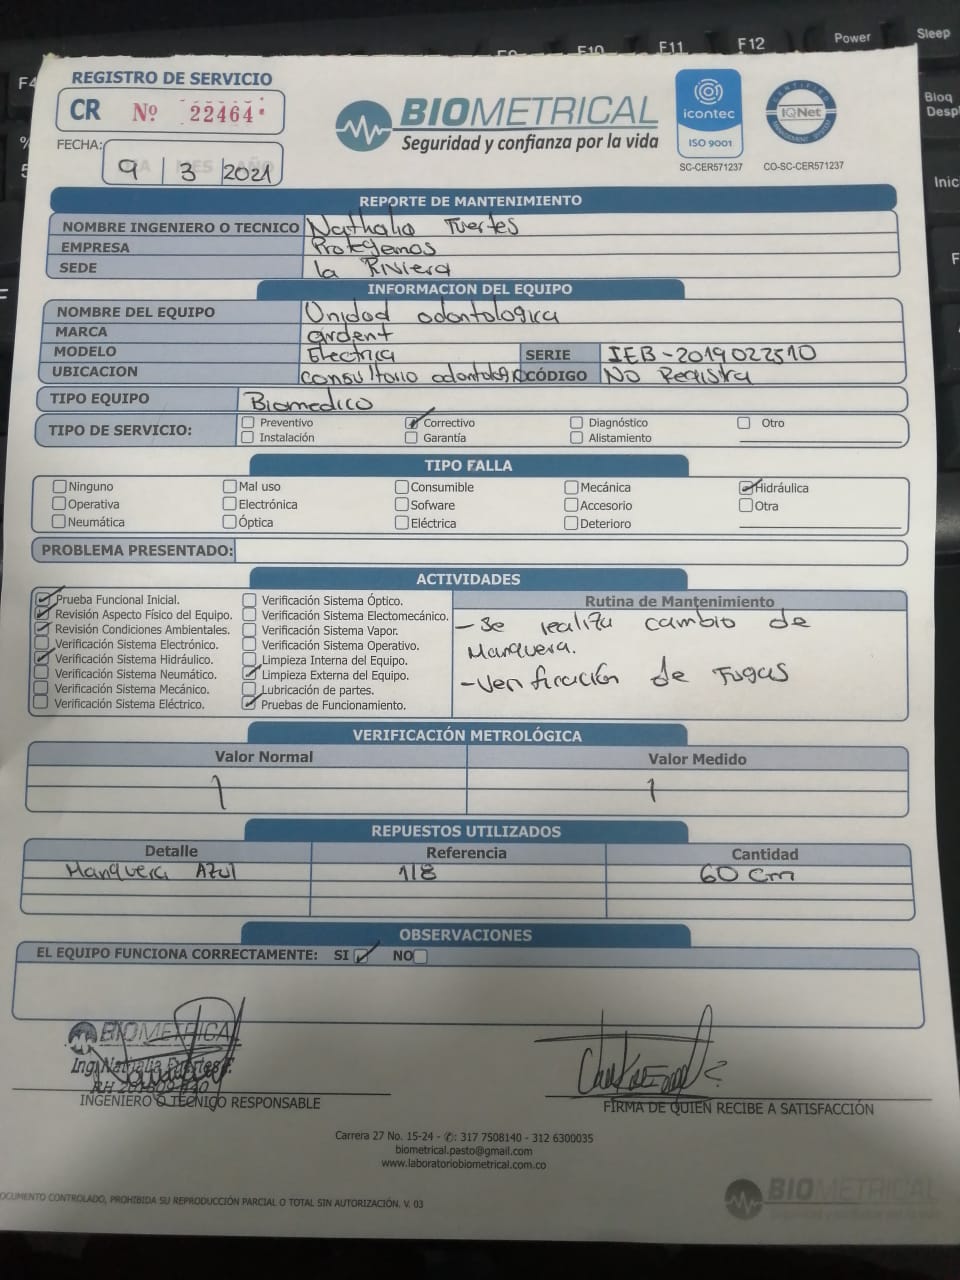 Power
Sleep
F4
F9
F10
F11
F12
Bloq
Despl
Inic
REGISTRO DE SERVICIO
CR Nº 22464
FECHA:
9 3 2021
BIOMETRICAL
Seguridad y confianza por la vida
icontec
ISO 9001
SC-CER571237
CERTIFIED
IQNet
MANAGEMENT SYSTEM
CO-SC-CER571237
REPORTE DE MANTENIMIENTO
NOMBRE INGENIERO O TECNICO Nathalia Fuertes
EMPRESA Protegemos
SEDE la Riviera
INFORMACION DEL EQUIPO
NOMBRE DEL EQUIPO Unidad odontologica
MARCA ardent
MODELO Electrica SERIE IEB-2019022510
UBICACION CÓDIGO No Registra
TIPO EQUIPO Biomedico
TIPO DE SERVICIO:
Preventivo Correctivo Diagnóstico Otro
Instalación Garantía Alistamiento
TIPO FALLA
Ninguno Mal uso Consumible Mecánica Hidráulica
Operativa Electrónica Sofware Accesorio Otra
Neumática Óptica Eléctrica Deterioro
PROBLEMA PRESENTADO:
ACTIVIDADES
Prueba Funcional Inicial.
Revisión Aspecto Físico del Equipo.
Revisión Condiciones Ambientales.
Verificación Sistema Electrónico.
Verificación Sistema Hidráulico.
Verificación Sistema Neumático.
Verificación Sistema Mecánico.
Verificación Sistema Eléctrico.
Verificación Sistema Óptico.
Verificación Sistema Electomecánico.
Verificación Sistema Vapor.
Verificación Sistema Operativo.
Limpieza Interna del Equipo.
Limpieza Externa del Equipo.
Lubricación de partes.
Pruebas de Funcionamiento.
Rutina de Mantenimiento
- Se realiza cambio de
Manquera.
- Verificación de Fugas
VERIFICACIÓN METROLÓGICA
Valor Normal Valor Medido
REPUESTOS UTILIZADOS
Detalle Referencia Cantidad
Manquera Azul 1/8 60 cm
OBSERVACIONES
EL EQUIPO FUNCIONA CORRECTAMENTE: SI NO
BIOMETRICAL
Ing. Nathalia Fuertes F.
INGENIERO O TECNICO RESPONSABLE
FIRMA DE QUIEN RECIBE A SATISFACCIÓN
Carrera 27 No. 15-24 - ✆: 317 7508140 - 312 6300035
biometrical.pasto@gmail.com
www.laboratoriobiometrical.com.co
DOCUMENTO CONTROLADO, PROHIBIDA SU REPRODUCCIÓN PARCIAL O TOTAL SIN AUTORIZACIÓN. V. 03
BIOMETRICAL
Seguridad y confianza por la vida